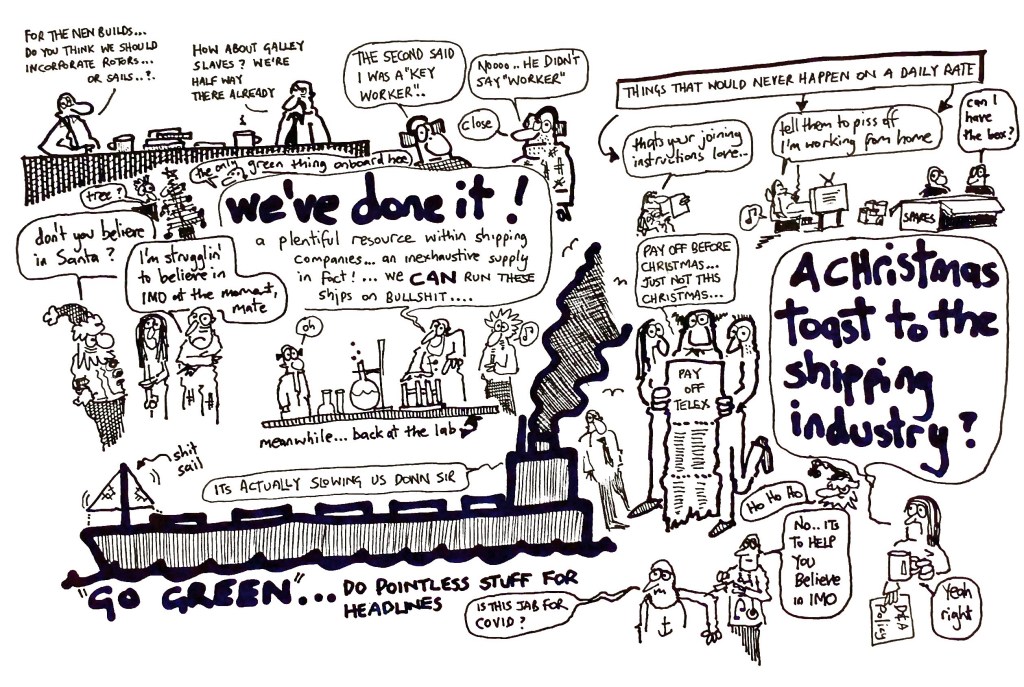 FOR THE NEW BUILDS...
DO YOU THINK WE SHOULD
INCORPORATE ROTORS...
OR SAILS..?.
HOW ABOUT GALLEY
SLAVES? WE'RE
HALF WAY
THERE ALREADY
THE SECOND SAID
I WAS A "KEY
WORKER"..
NOOOO.. HE DIDN'T
SAY "WORKER"
close
THINGS THAT WOULD NEVER HAPPEN ON A DAILY RATE
thats your joining
instructions love..
tell them to piss off
I'm working from home
can I
have
the box?
SPARES
tree?
the only green thing onboard hoe
don't you believe
in Santa?
I'm strugglin'
to believe in
IMO at the moment,
mate
we've done it!
a plentiful resource within shipping
companies... an inexhaustive supply
in fact!... we CAN RUN THESE
ships on BULLSHIT....
oh
meanwhile... back at the lab
PAY OFF BEFORE
CHRISTMAS...
JUST NOT THIS
CHRISTMAS...
PAY
OFF
TELEX
A CHRISTMAS
toast to the
shipping
industry?
shit
sail
ITS ACTUALLY SLOWING US DOWN SIR
"GO GREEN"... DO POINTLESS STUFF FOR
HEADLINES
IS THIS JAB FOR
COVID?
Ho Ho Ho
No.. ITS
TO HELP
YOU
Believe
in IMO
D&A
Policy
Yeah
right